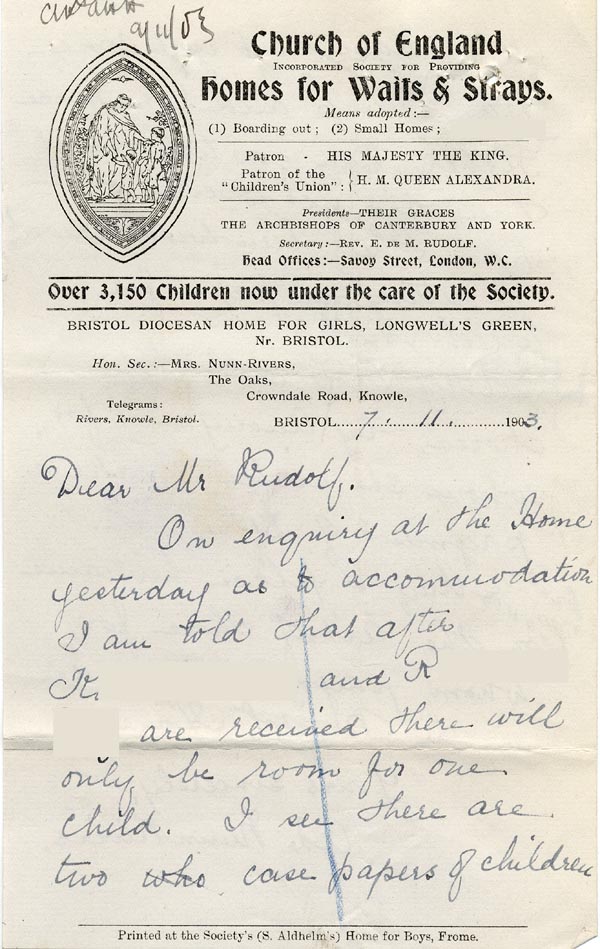 9/11/03
Church of England
INCORPORATED SOCIETY FOR PROVIDING
Homes for Waifs & Strays.
Means adopted:—
(1) Boarding out; (2) Small Homes;
Patron - HIS MAJESTY THE KING.
Patron of the "Children's Union": { H. M. QUEEN ALEXANDRA.
Presidents—THEIR GRACES
THE ARCHBISHOPS OF CANTERBURY AND YORK.
Secretary:—REV. E. DE M. RUDOLF.
Head Offices:—Savoy Street, London, W.C.
Over 3,150 Children now under the care of the Society.
BRISTOL DIOCESAN HOME FOR GIRLS, LONGWELL'S GREEN,
Nr. BRISTOL.
Hon. Sec.:—MRS. NUNN-RIVERS,
The Oaks,
Crowndale Road, Knowle,
Telegrams:
Rivers, Knowle, Bristol.
BRISTOL....7.........11.............1903.
Dear Mr Rudolf.
On enquiry at the Home
yesterday as to accommodation
I am told that after
K and R
are received there will
only be room for one
child. I see there are
two who case papers of children
Printed at the Society's (S. Aldhelm's) Home for Boys, Frome.